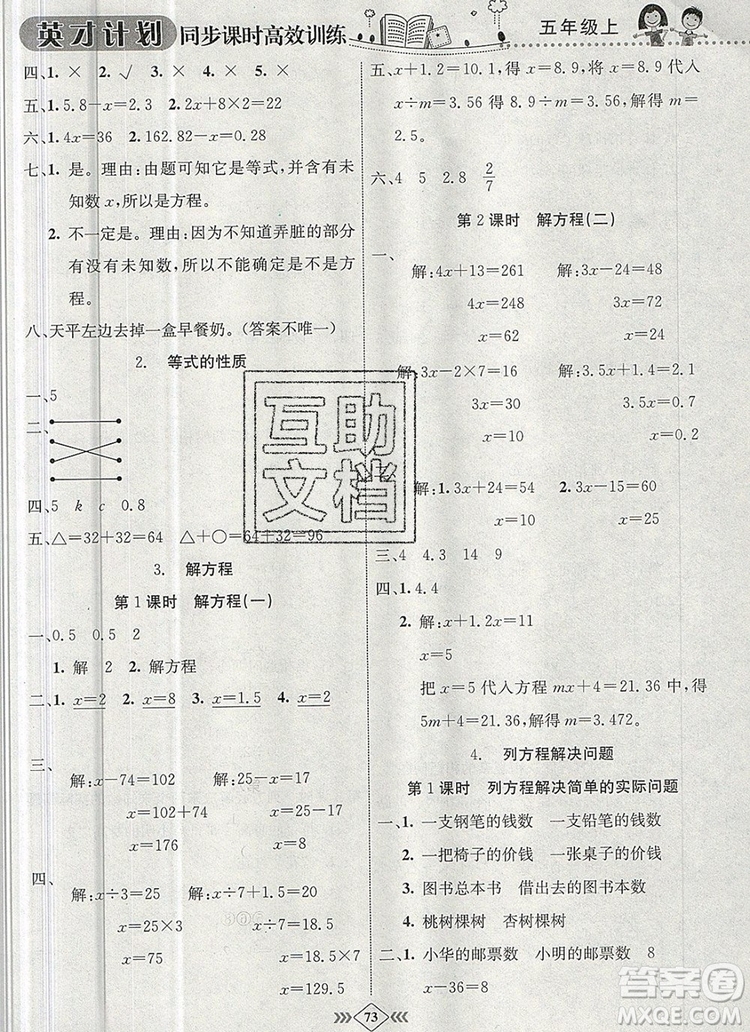 英才计划 同步课时高效训练 五年级上
四、1. × 2. √ 3. × 4. × 5. ×
五、1. 5.8－x＝2.3 2. 2x＋8×2＝22
六、1. 4x＝36 2. 162.82－x＝0.28
七、1. 是。理由:由题可知它是等式,并含有未
知数 x,所以是方程。
2. 不一定是。理由:因为不知道弄脏的部分
有没有未知数,所以不能确定是不是方
程。
八、天平左边去掉一盒早餐奶。(答案不唯一)
2. 等式的性质
一、5
二、
四、5 k c 0.8
五、△＝32＋32＝64 △＋○＝64＋32＝96
3. 解方程
第1课时 解方程(一)
一、0.5 0.5 2
1. 解 2 2. 解方程
二、1. x＝2 2. x＝8 3. x＝1.5 4. x＝2
三、
解:x－74＝102 解:x＋17＝25
x＝102＋74 x＝25－17
x＝176 x＝8
四、
解:x÷3＝25 解:x÷7＝18.5
x＝25×3 x＝18.5×7
x＝75 x＝129.5
五、x＋1.2＝10.1,得 x＝8.9,将 x＝8.9代入
x÷m＝3.56 得 8.9÷m＝3.56,解得 m＝
2.5。
六、4 5 2.8 2/7
第2课时 解方程(二)
一、
解:4x＋13＝261 解:3x－24＝48
4x＝248 3x＝72
x＝62 x＝24
解:3x－2×7＝16 解:3.5x＋1.4＝2.1
3x＝30 3.5x＝0.7
x＝10 x＝0.2
解:1. 3x＋24＝54 2. 3x－15＝60
x＝10 x＝25
三、4 4.3 14 9
四、1. 4.4
2. 解:x＋1.2x＝11
x＝5
把 x＝5 代入方程 mx＋4＝21.36 中,得
5m＋4＝21.36,解得 m＝3.472。
4. 列方程解决问题
第1课时 列方程解决简单的实际问题
一、1. 一支钢笔的钱数 一支铅笔的钱数
2. 一把椅子的价钱 一张桌子的价钱
3. 图书总本书 借出去的图书本数
4. 桃树棵树 杏树棵树
二、1. 小华的邮票数 小明的邮票数 8
x－36＝8
73
互助文档
答案圈
MXQE.COM